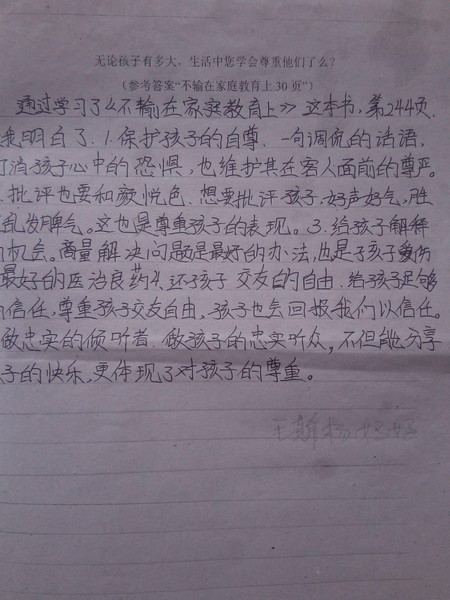 无论孩子有多大，生活中您学会尊重他们了么？
（参考答案“不输在家庭教育上30页”）
通过学习了《不输在家庭教育上》这本书，第244页，
我明白了.1.保护孩子的自尊、一句调侃的话语，
打消孩子心中的恐惧，也维护其在客人面前的尊严。
.批评也要和颜悦色.想要批评孩子，好声好气，胜
乱发脾气。这也是尊重孩子的表现。3.给孩子解释
机会。商量解决问题是最好的办法，也是孩子
最好的医治良药4.还孩子交友的自由.给孩子足够
信任，尊重孩子交友自由，孩子也会回报我们以信任。
做忠实的倾听者.做孩子的忠实听众，不但能分享
子的快乐，更体现了对孩子的尊重。
王